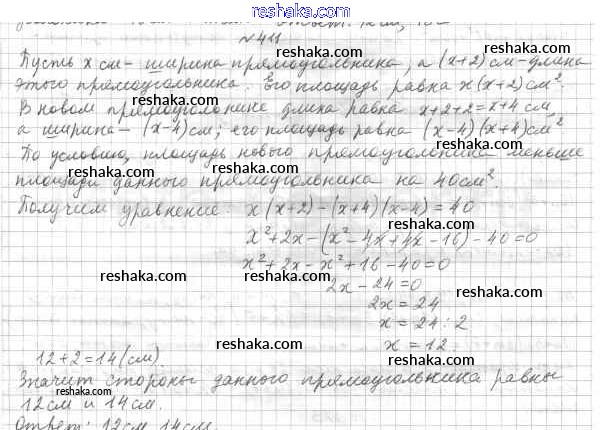 reshaka.com
ответ: 12 см,
№ 411
Пусть x см - ширина прямоугольника, а (x+2) см - длина
этого прямоугольника. Его площадь равна x(x+2) см².
В новом прямоуголонике длина равна x+2+2=x+4 см,
а ширина - (x-4) см; его площадь равна (x-4)(x+4) см²
По условию, площадь нового прямоугольника меньше
площади данного прямоугольника на 40 см².
Получим уравнение: x(x+2)-(x+4)(x-4)=40
x²+2x-(x²-4x+4x-16)-40=0
x²+2x-x²+16-40=0
2x-24=0
2x=24
x=24:2
x=12
12+2=14 (см)
Значит стороны данного прямоугольника равны
12 см и 14 см.
Ответ: 12 см, 14 см.
reshaka.com
reshaka.com
reshaka.com
reshaka.com
reshaka.com
reshaka.com
reshaka.com
reshaka.com
reshaka.com
reshaka.com
reshaka.com
reshaka.com